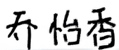 乔怡香